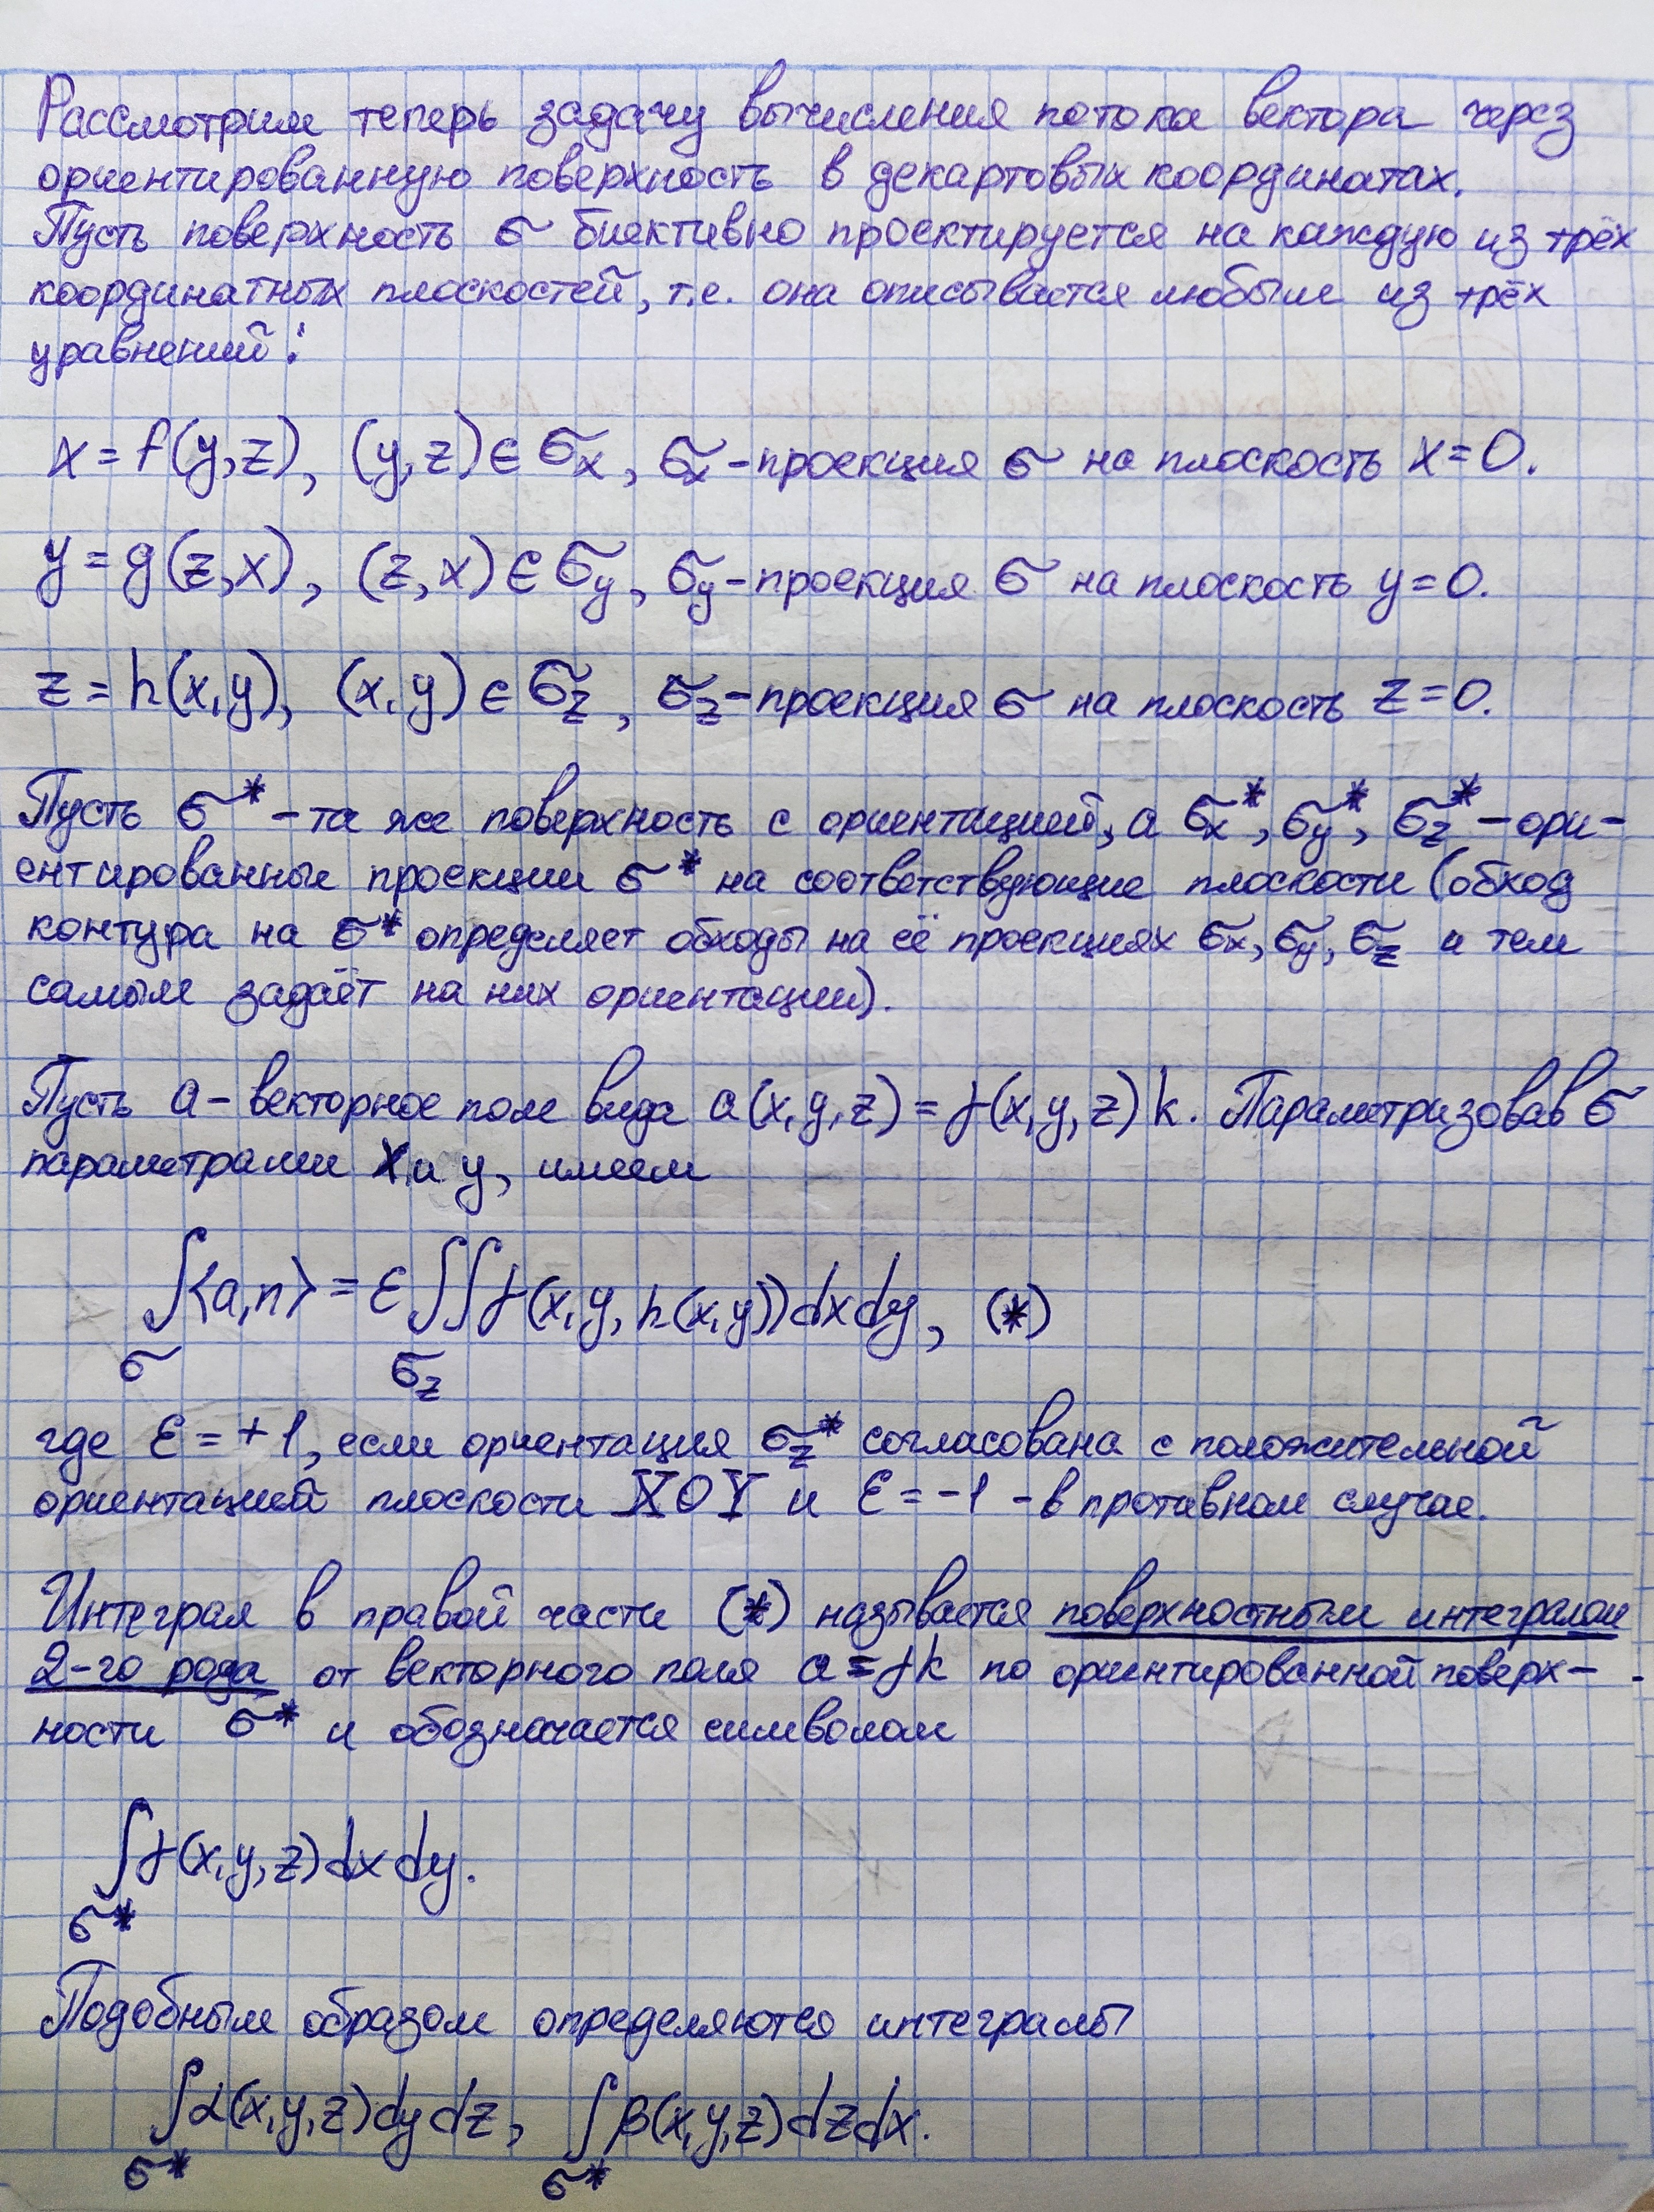 Рассмотрим теперь задачу вычисления потока вектора через
ориентированную поверхность в декартовых координатах.
Пусть поверхность σ биективно проектируется на каждую из трёх
координатных плоскостей, т.е. она описывается любым из трёх
уравнений:
x = f(y,z), (y,z) ∈ σₓ, σₓ - проекция σ на плоскость x=0.
y = g(z,x), (z,x) ∈ σ_y, σ_y - проекция σ на плоскость y=0.
z = h(x,y), (x,y) ∈ σ_z, σ_z - проекция σ на плоскость z=0.
Пусть σ* - та же поверхность с ориентацией, а σₓ*, σ_y*, σ_z* - ори-
ентированные проекции σ* на соответствующие плоскости (обход
контура на σ* определяет обходы на её проекциях σₓ, σ_y, σ_z и тем
самым задаёт на них ориентации).
Пусть a - векторное поле вида a(x,y,z) = γ(x,y,z) k. Параметризовав σ
параметрами x и y, имеем
∫⟨a,n⟩ = ε ∬ γ(x,y,h(x,y)) dx dy, (*)
σ σ_z
где ε = +1, если ориентация σ_z* согласована с положительной
ориентацией плоскости XOY и ε = -1 - в противном случае.
Интеграл в правой части (*) называется поверхностным интегралом
2-го рода от векторного поля a = γk по ориентированной поверх-
ности σ* и обозначается символом
∫ γ(x,y,z) dx dy.
σ*
Подобным образом определяются интегралы
∫ α(x,y,z) dy dz, ∫ β(x,y,z) dz dx.
σ* σ*